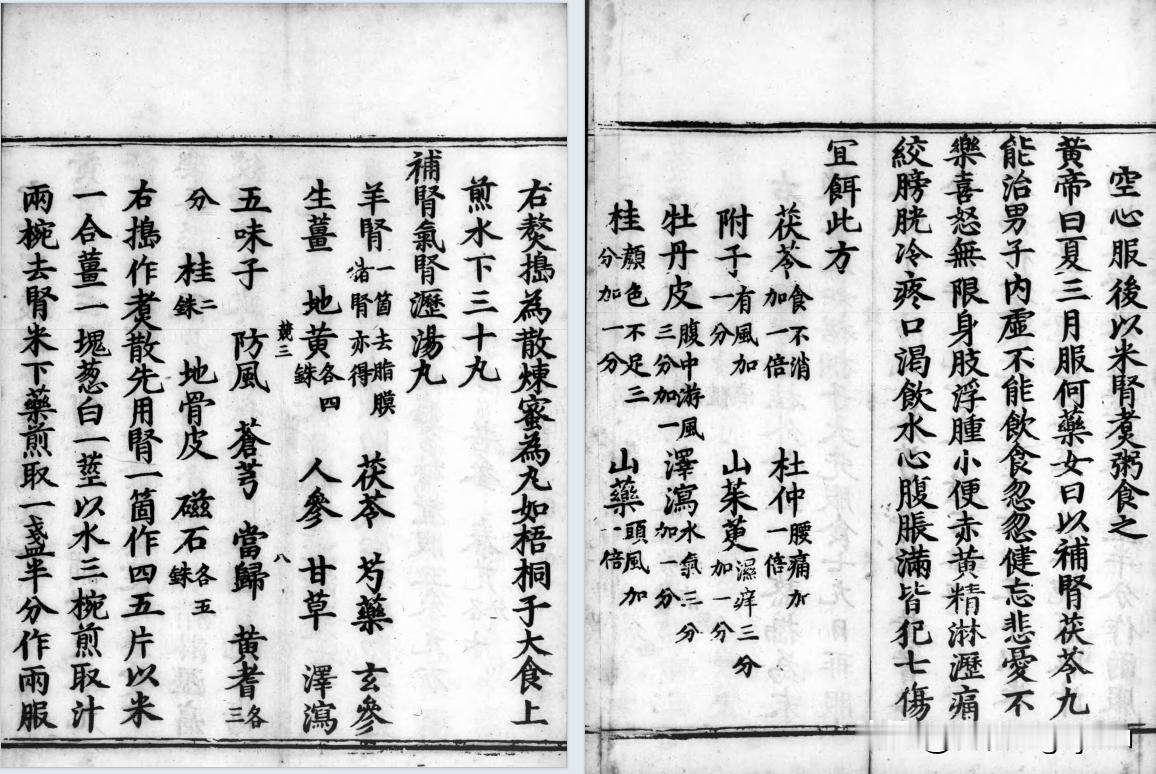 空心服後以米腎煑粥食之
黄帝曰夏三月服何藥女曰以補腎茯苓丸
能治男子内虚不能飲食忽忽健忘悲憂不
樂喜怒無限身肢浮腫小便赤黄精淋瀝痛
絞膀胱冷疼口渴飲水心腹脹滿皆犯七傷
宜餌此方
茯苓食不消加一倍 杜仲腰痛加一倍
附子有風加一分 山茱萸濕痒三分加一分
牡丹皮腹中游風三分加一 澤瀉水氣三分加一分
桂顏色不足三分加一分 山藥頭風加一倍
右熬搗為散煉蜜為丸如梧桐子大食上
煎水下三十丸
補腎氣腎瀝湯丸
羊腎一箇去脂膜猪腎亦得 茯苓 芍藥 玄參
生薑 地黄各四銖 人參 甘草 澤瀉
競三 八
五味子 防風 蒼芎 當歸 黄耆各三
分 桂二銖 地骨皮 磁石各五銖
右搗作煑散先用腎一箇作四五片以米
一合薑一塊葱白一莖以水三椀煎取汁
兩椀去腎米下藥煎取一盞半分作兩服